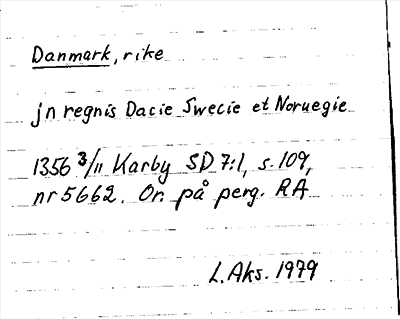 Danmark, rike
jn regnis Dacie Swecie et Noruegie
1356 3/11 Karby SD 7:1, s. 109,
nr 5662. Or. på perg. RA
L. Aks. 1979